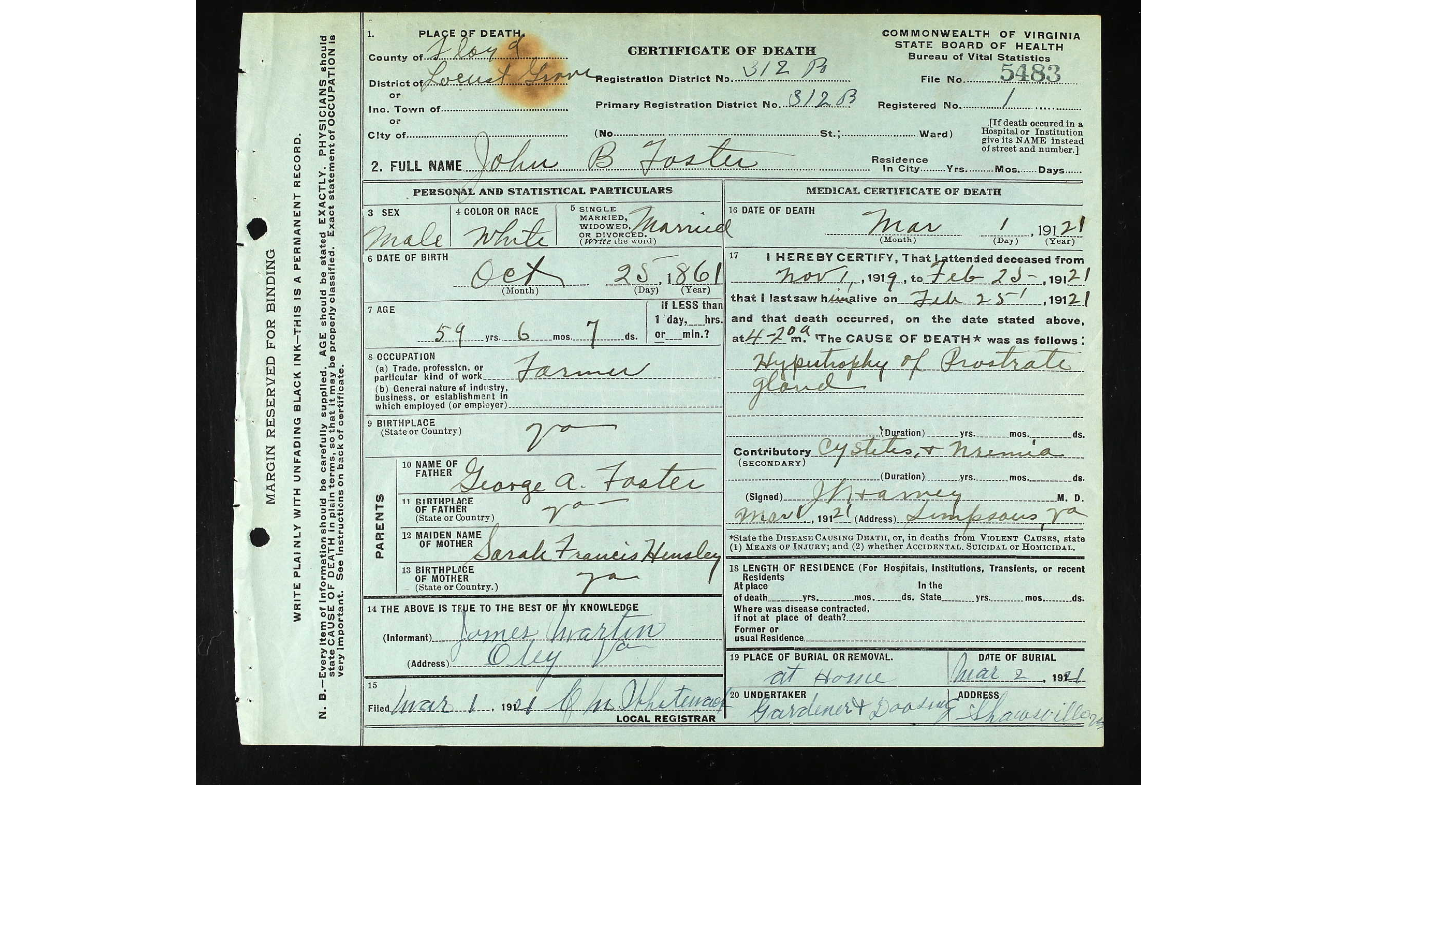 1. PLACE OF DEATH.
County of Floyd
District of Locust Grove
or
Inc. Town of
or
City of
CERTIFICATE OF DEATH
Registration District No. 312 B
Primary Registration District No. 312 B
(No. St.; Ward)
COMMONWEALTH OF VIRGINIA
STATE BOARD OF HEALTH
Bureau of Vital Statistics
File No. 5483
Registered No. 1
[If death occured in a
Hospital or Institution
give its NAME instead
of street and number.]
2. FULL NAME John B Foster
Residence
In City Yrs. Mos. Days
PERSONAL AND STATISTICAL PARTICULARS
3 SEX
Male
4 COLOR OR RACE
White
5 SINGLE
MARRIED,
WIDOWED,
OR DIVORCED.
(Write the word)
Married
6 DATE OF BIRTH
Oct 25, 1861
(Month) (Day) (Year)
7 AGE
59 yrs. 6 mos. 7 ds.
if LESS than
1 day, hrs.
or min.?
8 OCCUPATION
(a) Trade, profession, or
particular kind of work Farmer
(b) General nature of industry,
business, or establishment in
which employed (or employer)
9 BIRTHPLACE
(State or Country)
Va
PARENTS
10 NAME OF
FATHER
George A. Foster
11 BIRTHPLACE
OF FATHER
(State or Country)
Va
12 MAIDEN NAME
OF MOTHER
Sarah Francis Hensley
13 BIRTHPLACE
OF MOTHER
(State or Country.)
Va
14 THE ABOVE IS TRUE TO THE BEST OF MY KNOWLEDGE
(Informant) James Martin
(Address) Va
15
Filed Mar 1, 1921
LOCAL REGISTRAR
MEDICAL CERTIFICATE OF DEATH
16 DATE OF DEATH
Mar 1, 19121
(Month) (Day) (Year)
17 I HEREBY CERTIFY, That I attended deceased from
Nov 1, 1919, to Feb 25, 19121
that I last saw him alive on Feb 25, 19121
and that death occurred, on the date stated above,
at 4-20 a m. The CAUSE OF DEATH* was as follows:
Hypertrophy of Prostrate
gland
(Duration) yrs. mos. ds.
Contributory Cystitis, + Uremia
(SECONDARY)
(Duration) yrs. mos. ds.
(Signed) M. D.
Mar 1, 19121 (Address) Simpsons, Va
*State the DISEASE CAUSING DEATH, or, in deaths from VIOLENT CAUSES, state
(1) MEANS OF INJURY; and (2) whether ACCIDENTAL, SUICIDAL OR HOMICIDAL.
18 LENGTH OF RESIDENCE (For Hospitals, Institutions, Transients, or recent
Residents
At place In the
of death yrs. mos. ds. State yrs. mos. ds.
Where was disease contracted,
if not at place of death?
Former or
usual Residence
19 PLACE OF BURIAL OR REMOVAL.
at Home
DATE OF BURIAL
Mar 2, 1921
20 UNDERTAKER
Gardener +
ADDRESS
Shawsville
MARGIN RESERVED FOR BINDING
WRITE PLAINLY WITH UNFADING BLACK INK—THIS IS A PERMANENT RECORD.
N. B.—Every item of information should be carefully supplied. AGE should be stated EXACTLY. PHYSICIANS should
state CAUSE OF DEATH in plain terms, so that it may be properly classified. Exact statement of OCCUPATION is
very important. See instructions on back of certificate.